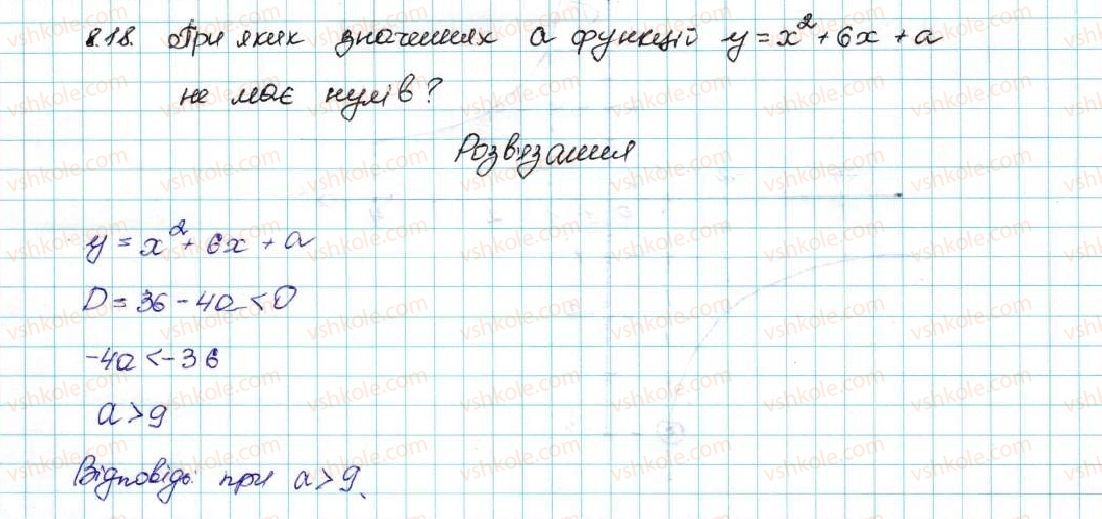 8.18. При яких значеннях a функції y = x² + 6x + a
не має нулів?
Розв'язання
y = x² + 6x + a
D = 36 - 4a < 0
-4a < -36
a > 9
Відповідь: при a > 9.